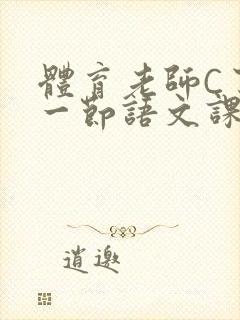 體育老師C
一節語文課
逍遨